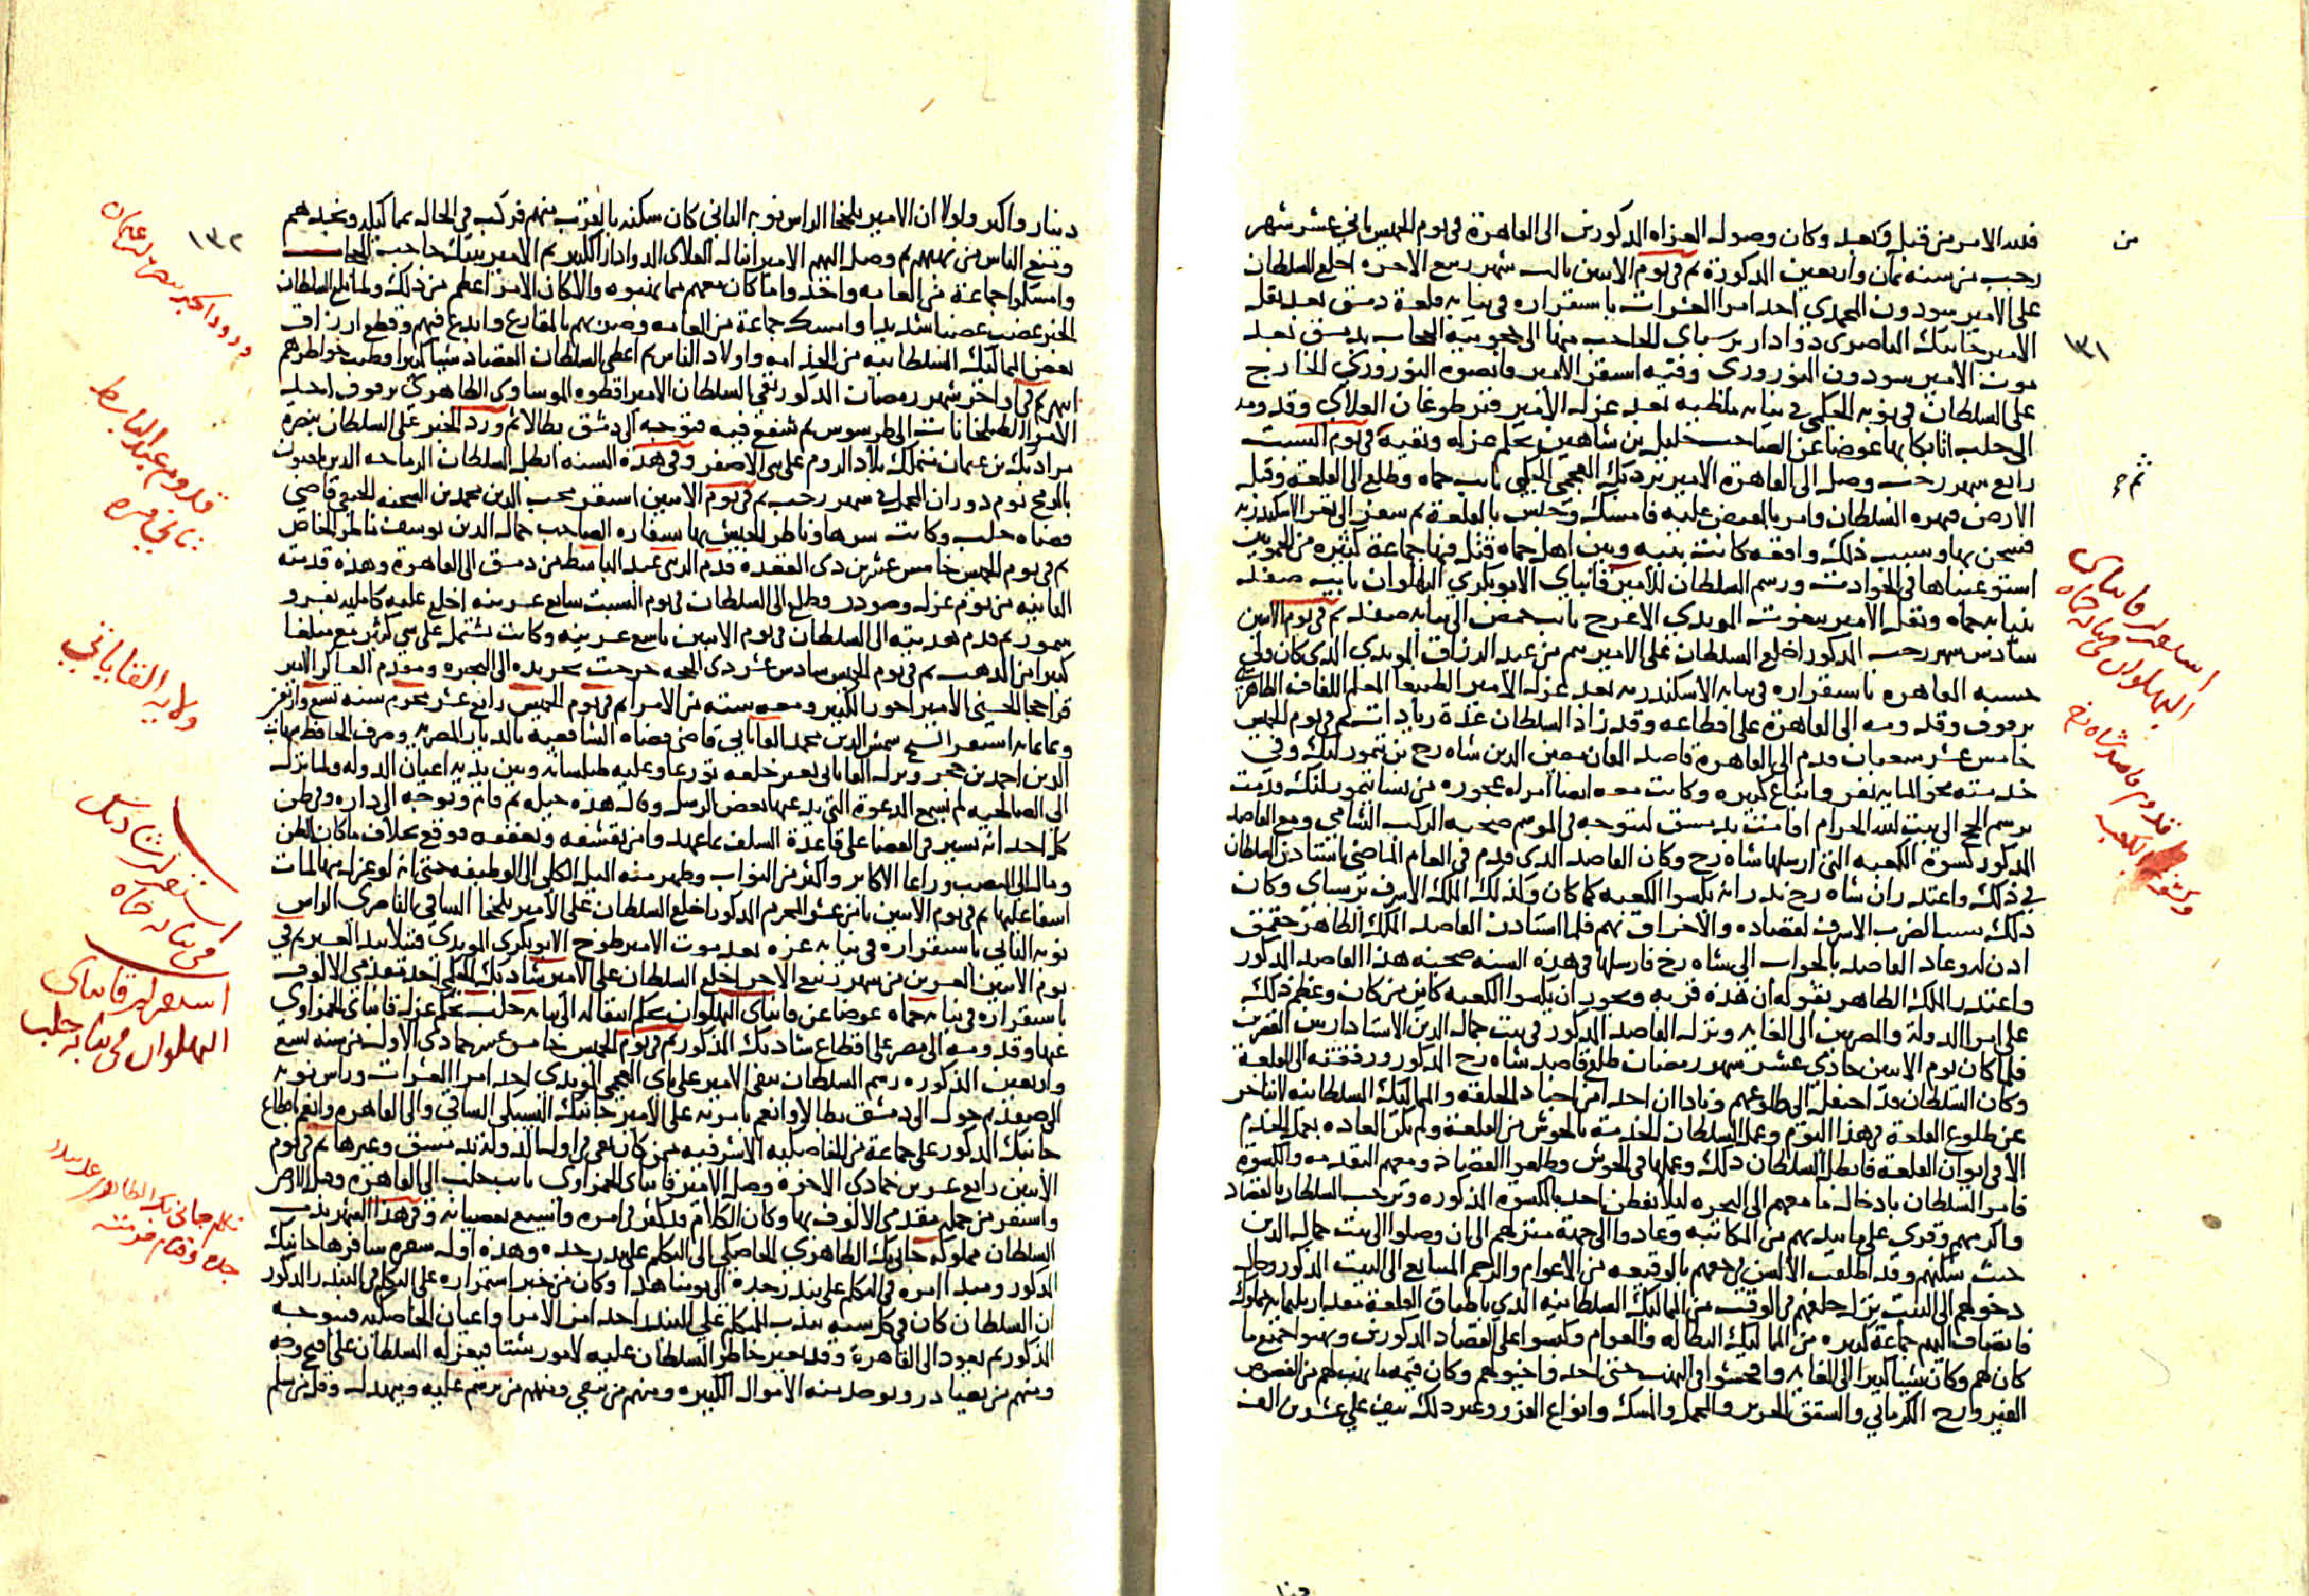 فلله الامر من قبل وبعد وكان وصول الغزاه المذكورين الى القاهرة في يوم الخميس ثاني عشر شهر
رجب من سنه ثمان واربعين المذكورة ثم في يوم الاثنين ثالث شهر ربيع الاخره اخلع السلطان
على الامير سودون المحمدي احد امرا العشرات باستقراره في نيابه قلعة دمشق بعد نقل
الامير جانبك الناصري دوادار برسباي الحاجب منها الى حجوبية الحجاب بدمشق بعد
موت الامير سودون النوروزي وفيه استقر الامير قانصوه النوروزي الخارج
على السلطان في نوبه الجكمي في نيابه ملطيه بعد عزل الامير قيزطوغان العلاي وقدومه
الى حلب اتابكا بها عوضا عن الصاحب خليل بن شاهين بحكم عزله ونفيه في يوم السبت
رابع شهر رجب وصل الى القاهرة الامير بردبك العجمي الجكمي نايب حماه وطلع الى القلعة وقبل
الارض فنهره السلطان وامر بالقبض عليه فامسك وحبس بالقلعة ثم سفر الى ثغر الاسكندريه
فسجن بها وسبب ذلك واقعه كانت بينه وبين اهل حماه قتل فيها جماعة كثيره من الحمويين
استوعبناها في الحوادث ورسم السلطان للامير قانباي الابوبكري البهلوان نايب صفد
بنيابه حماه ونقل الامير بيغوت المويدي الاعرج نايب حمص الى نيابه صفد ثم في يوم الاثنين
سادس شهر رجب المذكور اخلع السلطان على الامير تنم من عبد الرزاق المويدي الذي كان ولي
حسبه القاهره باستقراره في نيابه الاسكندريه بعد عزل الامير الطنبغا المعلم اللفاف الظاهري
برقوق وقدومه الى القاهرة على اقطاعه وقد زاد السلطان عدة زيادات ثم في يوم الخميس
خامس عشر شعبان قدم الى القاهرة قاصد القان معين الدين شاه رخ بن تيمورلنك وفي
خدمته نحو المايه نفر واتباع كثيره وكانت معه ايضا امراه عجوزه من نسا تيمورلنك قدمت
برسم الحج الى بيت الله الحرام اقامت بدمشق لتتوجه في الموسم صحبه الركب الشامي ومع القاصد
المذكور كسوة الكعبه التي ارسلها شاه رخ وكان القاصد الذي قدم في العام الماضي استاذن السلطان
في ذلك واعتذر ان شاه رخ نذر انه يكسوا الكعبه كما كان وكذلك الملك الاشرف برسباي وكان
ذلك سببا لضرب الاشرف لقصاده والاخراق بهم فلما استاذن القاصد الملك الظاهر جقمق
اذن له وعاد القاصد بالجواب الى شاه رخ فارسلها في هذه السنه صحبه هذا القاصد المذكور
واعتذر الملك الظاهر بقوله ان هذه قربه ويجوز ان يكسوا الكعبه كاين من كان وعظم ذلك
على امرا الدولة والمصريين الى الغايه ونزل القاصد المذكور في بيت جمال الدين الاستادار بين القصرين
فلما كان يوم الاثنين حادي عشر شهر رمضان طلع قاصد شاه رخ المذكور ورفقته الى القلعة
وكان السلطان قد احتفل الى طلوعهم ونادا ان احدا من اجناد الحلقه والمماليك السلطانيه لا يتاخر
عن طلوع القلعة في هذا اليوم وعمل السلطان الخدمة بالحوش من القلعة ولم تكن العاده بعمل الخدم
الا في ايوان القلعه فابطل السلطان ذلك وعملها في الحوش وطلعوا القصاد ومعهم التقدمه والكسوة
فامر السلطان بادخال ما معهم الى البحره ليلا يفطن احد بالكسوه المذكوره وترحب السلطان بالقصاد
واكرمهم وقرى على ما بيدهم من المكاتبه وعادوا الى جهة منزلهم الى ان وصلوا الى بيت جمال الدين
حيث سكنهم وقد اطلقت الالسن في حقهم بالوقيعه من الاعوام والرجم المتتابع الى البيت المذكور وحال
دخولهم الى البيت نزل خلفهم في الوقت من المماليك السلطانيه الذي باطباق القلعة مقدار ثلثمايه مملوك
فانضاف اليهم جماعة كثيره من المماليك البطاله والعوام وكبسوا على القصاد المذكورين ونهبوا جميع ما
كان لهم وكان شيا كثيرا الى الغايه وافحشوا في النهب حتى اخذوا خيولهم وكان قيمة ما نهب لهم من الفصوص
الفيروزج الكرماني والشقق الحرير والمخمل والمسك وانواع الفرو وغير ذلك نيف على عشرين الف
من
١٣١
استقرار قانباى
البهلوان فى نيابه حماه
قدوم قاصد شاه رخ
وكسوة الكعبه
دينار واكثر ولولا ان الامير يلخجا الراس نوبه الثاني كان سكنه بالقرب منهم فركب في الحال بمماليكه ونجدهم
ومنع الناس من نهبهم ثم وصل اليهم الامير اينال العلاي الدوادار الكبير ثم الامير تنبك حاجب الحجاب
وامسكوا جماعة من العامه واخذوا ما كان معهم مما نهبوه والا كان الامر اعظم من ذلك ولما بلغ السلطان
الخبر غضب غضبا شديدا وامسك جماعة من العامه وضربهم بالمقارع وابدع فيهم وقطع ارزاق
بعض المماليك السلطانيه من الجامكيه واولاد الناس ثم اعطى السلطان القصاد شيا كثيرا وطيب خواطرهم
ثم في اواخر شهر رمضان المذكور نفى السلطان الامير اقطوه الموساوي الظاهري برقوق احد
الامرا الطبلخانات الى طرسوس ثم شفع فيه فتوجه الى دمشق بطالا ثم ورد الخبر على السلطان بنصرة
مراد بك بن عثمان متملك بلاد الروم على بني الاصفر وفي هذه السنه ابطل السلطان الرماحه الذين يلعبون
بالرمح يوم دوران المحمل في شهر رجب ثم في يوم الاثنين استقر محب الدين محمد بن الشحنه الحنفي قاضي
قضاه حلب وكاتب سرها وناظر الجيش بها بسفاره الصاحب جمال الدين يوسف ناظر الخاص
ثم في يوم الخميس خامس عشرين ذي القعده قدم الزيني عبد الباسط من دمشق الى القاهرة وهذه قدمته
الثانيه من يوم عزله وصودر وطلع الى السلطان في يوم السبت سابع عشرينه اخلع عليه كامليه بفرو
سمور ثم قدم تقدمته الى السلطان في يوم الاثنين تاسع عشرينه وكانت تشتمل على شي كثير مع مبلغا
كبيرا من الذهب ثم في يوم الخميس سادس عشر ذي الحجه خرجت تجريده الى البحيره ومقدم العساكر الامير
قراجا الحسني الامير اخور الكبير ومعه سته من الامرا ثم في يوم الخميس رابع عشر محرم سنه تسع واربعين
وثمانمايه استقر الشيخ شمس الدين محمد القاياتي قاضي قضاه الشافعيه بالديار المصريه وصرف الحافظ شهاب
الدين احمد بن حجر ونزل القاياتي بغير خلعه تورعا وعليه طيلسانه وبين يديه اعيان الدوله ولما نزل
الى الصالحيه لم يسمع الدعوة التي يدعيها بعض الرسل وقال هذه حيله ثم قام وتوجه الى داره وفي ظن
كل احد انه يسير في القضا على قاعدة السلف لما عهد وامن تقشفه وتعففه فوقع بخلاف ما كان الظن
ومال الى المنصب وراعا الاكابر واكثر من النواب وظهر منه الميل الكلي الى الوظيفه حتى انه لو عزل منها لمات
اسفا عليها ثم في يوم الاثنين ثامن عشر المحرم المذكور اخلع السلطان على الامير يلخجا الساقي الناصري الراس
نوبه الثاني باستقراره في نيابه غزه بعد موت الامير طوخ الابوبكري المويدي قتيلا بيد العرب ثم في
يوم الاثنين العشرين من شهر ربيع الاخر اخلع السلطان على الامير شادبك الجكمي احد مقدمي الالوف
باستقراره في نيابه حماه عوضا عن قانباي البهلوان بحكم انتقاله الى نيابه حلب بحكم عزل قانباي الحمزاوي
عنها وقدومه الى مصر على اقطاع شادبك المذكور ثم في يوم الخميس خامس عشر جمادى الاول من سنه تسع
واربعين المذكوره رسم السلطان بنفي الامير علي باي العجمي المويدي احد امرا العشرات وراس نوبه
الى صفد ثم حول الى دمشق بطالا وانعم بامرته على الامير جانبك السيسكي الساقي والي القاهره وانعم باقطاع
جانبك المذكور على جماعة من الخاصكيه الاشرفيه ممن كان نفي في اول الدوله بدمشق وغيرها ثم في يوم
الاثنين رابع عشرين جمادى الاخرة وصل الامير قانباي الحمزاوي نايب حلب الى القاهرة وقبل الارض
واستقر من جمله مقدمي الالوف بها وكان الكلام قد كثر في امره واشيع بعصيانه وفي هذا الشهر ندب
السلطان مملوكه جانبك الظاهري الخاصكي الى التكلم على بندر جده وهذه اول سفره سافرها جانبك
المذكور ومبدا امره في التكلم على بندر جدة الى يومنا هذا وكان من خبر استمراره على التكلم في البندر المذكور
ان السلطان كان في كل سنه يندب المتكلم على البندر احد من الامرا واعيان الخاصكيه فيتوجه
المذكور ثم يعود الى القاهرة وقد تغير خاطر السلطان عليه لامور شتا فيعزله السلطان على اقبح وجه
ومنهم من يصادر ويوخذ منه الاموال الكثيره ومنهم من ينفي ومنهم من يرسم عليه ويبهدل وقل من سلم
١٣٢
ورود الخبر بنصرة ابن عثمان
قدوم عبد الباسط
ثاني مره
ولايه القاياتي
استقرار شادبك
فى نيابه حماه
استقرار قانباى
البهلوان فى نيابه حلب
تكلم جانى بك الظاهرى على بندر
جده